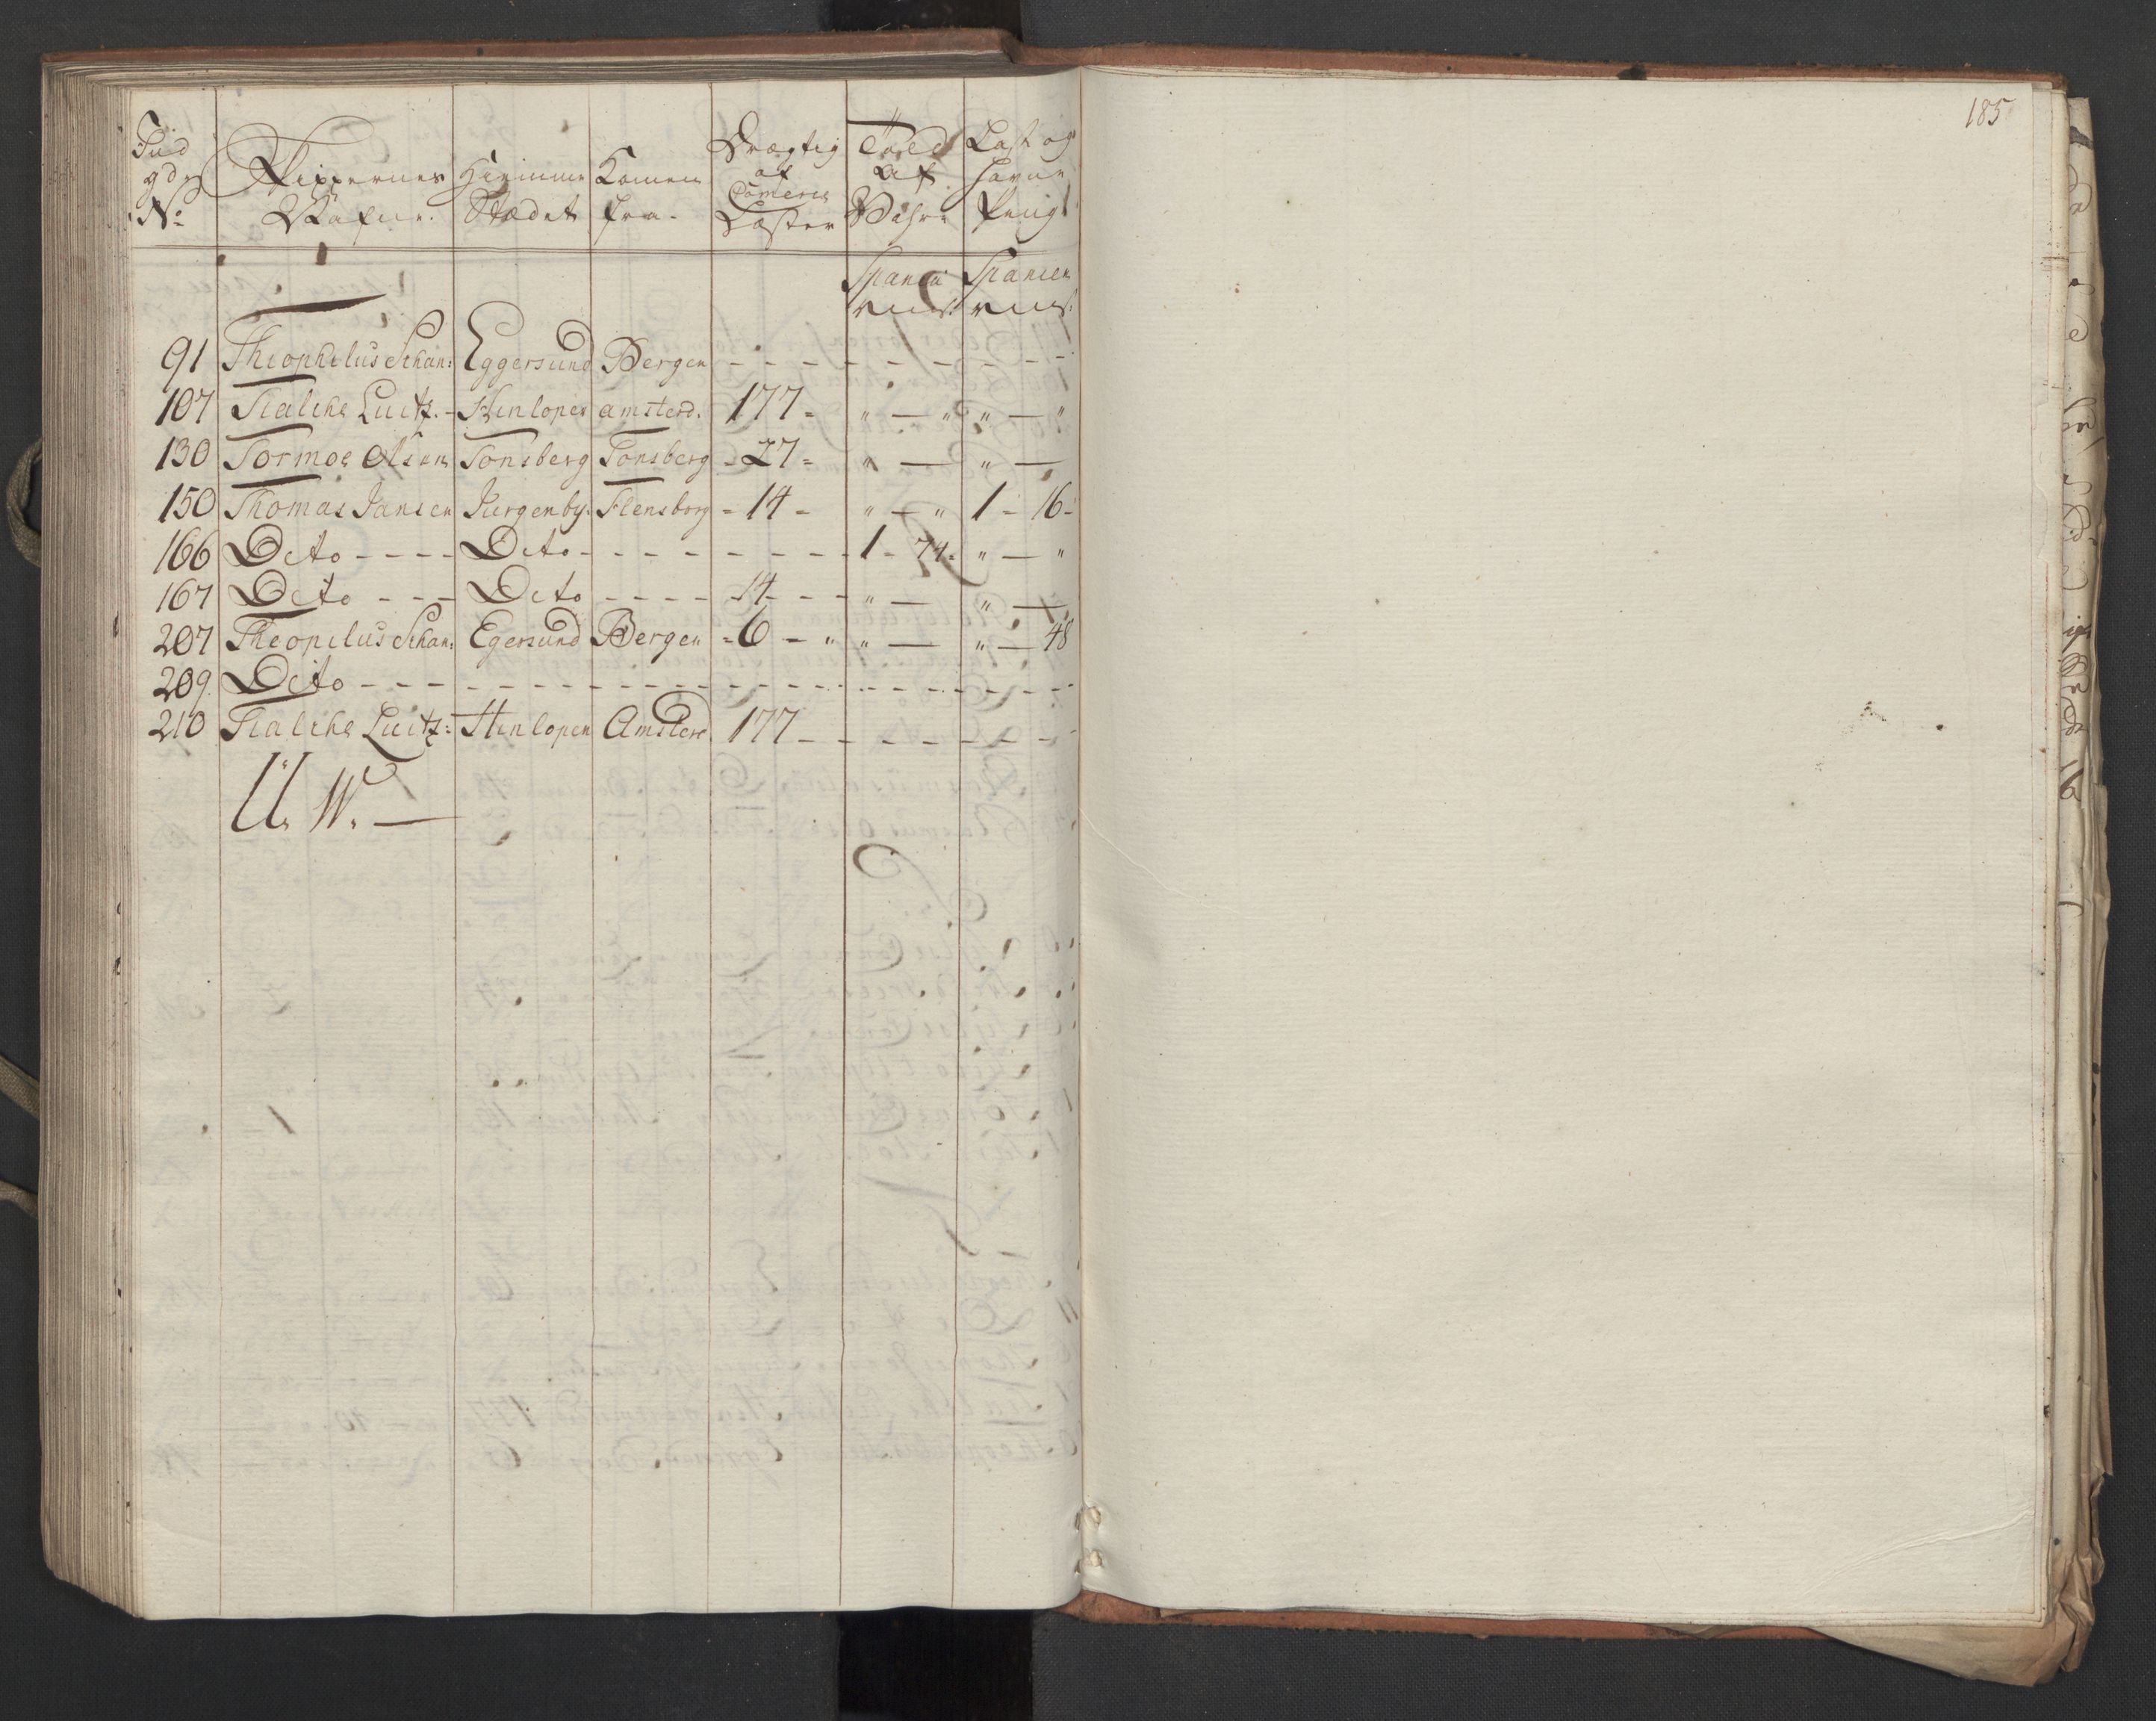 185
Ind
gds
No
Skippernes
Nafne.
Hiemme
Stædet
Komen
fra.
Drægtig
af
Comerce
Læster
Told
af
Vahre
Last og
Havne
Penge
91 Theophelus Schan: Eggersund Bergen - - - - - - - - -
107 Tialche Luitz. - Hinlopen amsterd. 177 - " — " " — "
130 Tormoe Olsen Tonsberg Tonsberg - 27 - " — " —
150 Thomas Jansen Jurgenby. Flensborg - 14 - " — " 1 - 16 -
166 Dito - - - - Dito - - - - - - - 1 - 74. " — "
167 Dito - - - Dito - - - - 14 - - - " — " —
207 Theopelus Schan: Egersund Bergen - 6 - " " — " — 48
209. Dito - - - - - - - - - - - - - - - -
210 Tialche Luitz: Hinlopen Amsterd 177 - - - - - - -
U. W. —